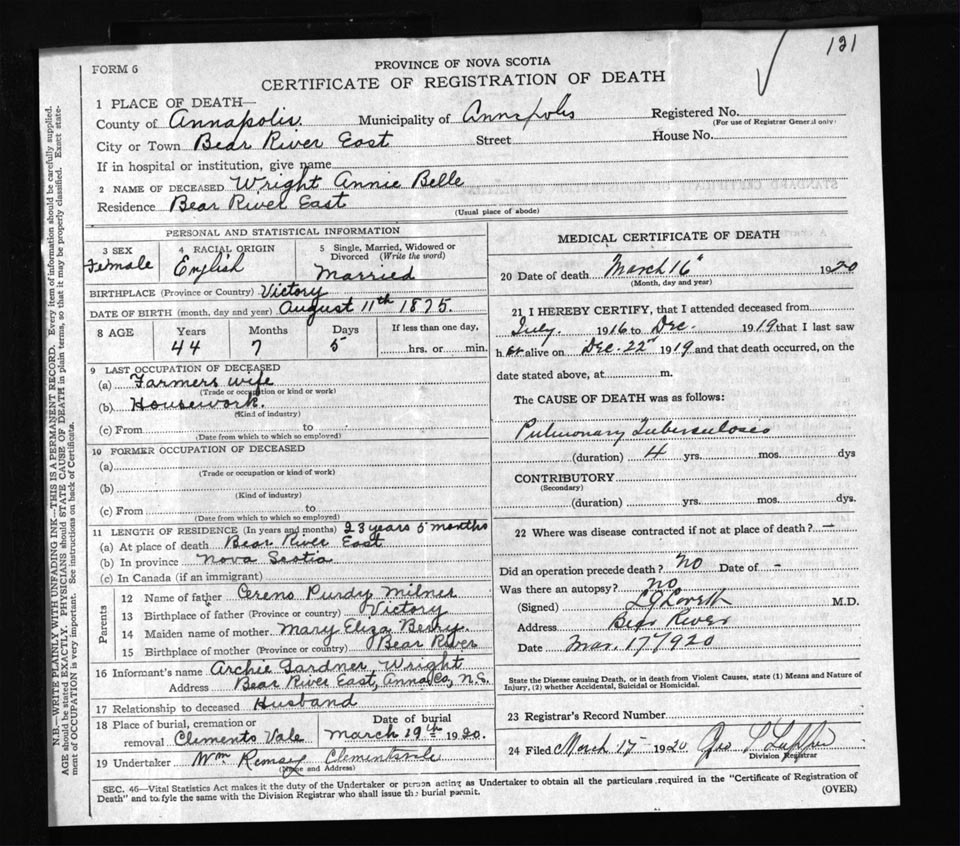 131
FORM 6
PROVINCE OF NOVA SCOTIA
CERTIFICATE OF REGISTRATION OF DEATH
1 PLACE OF DEATH—
County of Annapolis. Municipality of Annapolis Registered No.
(For use of Registrar General only)
City or Town Bear River East Street House No.
If in hospital or institution, give name
2 NAME OF DECEASED Wright Annie Belle
Residence Bear River East
(Usual place of abode)
PERSONAL AND STATISTICAL INFORMATION
3 SEX 4 RACIAL ORIGIN 5 Single, Married, Widowed or
Divorced (Write the word)
Female English Married
BIRTHPLACE (Province or Country) Victory
DATE OF BIRTH (month, day and year) August 11th 1875.
8 AGE Years Months Days If less than one day,
44 7 5 hrs. or min.
9 LAST OCCUPATION OF DECEASED
(a) Farmers wife
(Trade or occupation or kind or work)
(b) Housework.
(Kind of industry)
(c) From to
(Date from which to which so employed)
10 FORMER OCCUPATION OF DECEASED
(a)
(Trade or occupation or kind of work)
(b)
(Kind of industry)
(c) From to
(Date from which to which so employed)
11 LENGTH OF RESIDENCE (In years and months) 23 years 5 months
(a) At place of death Bear River East
(b) In province Nova Scotia
(c) In Canada (if an immigrant)
Parents
12 Name of father Cereno Purdy Milner
13 Birthplace of father (Province or country) Victory
14 Maiden name of mother Mary Eliza Berry.
15 Birthplace of mother (Province or country) Bear River
16 Informant's name Archie Gardner Wright
Address Bear River East, Anna Co, N.S.
17 Relationship to deceased Husband
18 Place of burial, cremation or Date of burial
removal Clements Vale March 19th 1920.
19 Undertaker Wm Ramsey Clementsvale
(Name and Address)
MEDICAL CERTIFICATE OF DEATH
20 Date of death March 16" 1920
(Month, day and year)
21 I HEREBY CERTIFY, that I attended deceased from
July. 1916 to Dec. 1919 that I last saw
her alive on Dec. 22nd 1919 and that death occurred, on the
date stated above, at m.
The CAUSE OF DEATH was as follows:
Pulmonary Tuberculosis
(duration) 4 yrs. mos. dys
CONTRIBUTORY
(Secondary)
(duration) yrs. mos. dys.
22 Where was disease contracted if not at place of death? —
Did an operation precede death? No Date of -
Was there an autopsy? No
(Signed) M.D.
Address Bear River
Date Mar. 17/920
State the Disease causing Death, or in death from Violent Causes, state (1) Means and Nature of
Injury, (2) whether Accidental, Suicidal or Homicidal.
23 Registrar's Record Number
24 Filed March 17- 1920
Division Registrar
SEC. 46—Vital Statistics Act makes it the duty of the Undertaker or person acting as Undertaker to obtain all the particulars required in the "Certificate of Registration of
Death" and to fyle the same with the Division Registrar who shall issue the burial permit.
(OVER)
N.B.—WRITE PLAINLY WITH UNFADING INK—THIS IS A PERMANENT RECORD. Every item of information should be carefully supplied.
AGE should be stated EXACTLY. PHYSICIANS should STATE CAUSE OF DEATH in plain terms, so that it may be properly classified. Exact state-
ment of OCCUPATION is very important. See instructions on back of Certificate.